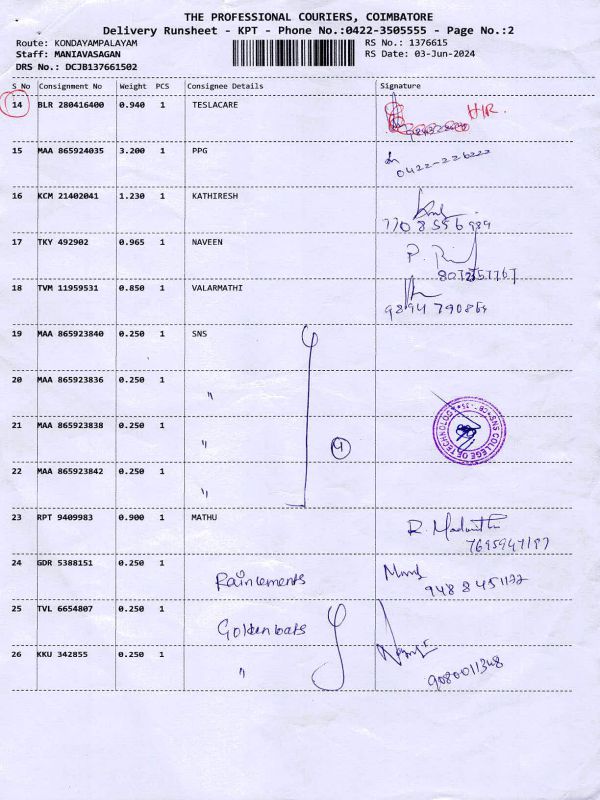 THE PROFESSIONAL COURIERS, COIMBATORE
Delivery Runsheet - KPT - Phone No.:0422-3505555 - Page No.:2
Route: KONDAYAMPALAYAM RS No.: 1376615
Staff: MANIAVASAGAN RS Date: 03-Jun-2024
DRS No.: DCJB137661502
S No Consignment No Weight PCS Consignee Details Signature
14 BLR 280416400 0.940 1 TESLACARE HR.
15 MAA 865924035 3.200 1 PPG
0422-226222
16 KCM 21402041 1.230 1 KATHIRESH
7708556989
17 TKY 492902 0.965 1 NAVEEN
18 TVM 11959531 0.850 1 VALARMATHI
9894790864
19 MAA 865923840 0.250 1 SNS
20 MAA 865923836 0.250 1 "
21 MAA 865923838 0.250 1 "
4
SNS COLLEGE OF TECHNOLOGY
22 MAA 865923842 0.250 1 "
23 RPT 9409983 0.900 1 MATHU
24 GDR 5388151 0.250 1 Rainlements
25 TVL 6654807 0.250 1 Goldenbats
26 KKU 342855 0.250 1 "
9080011348